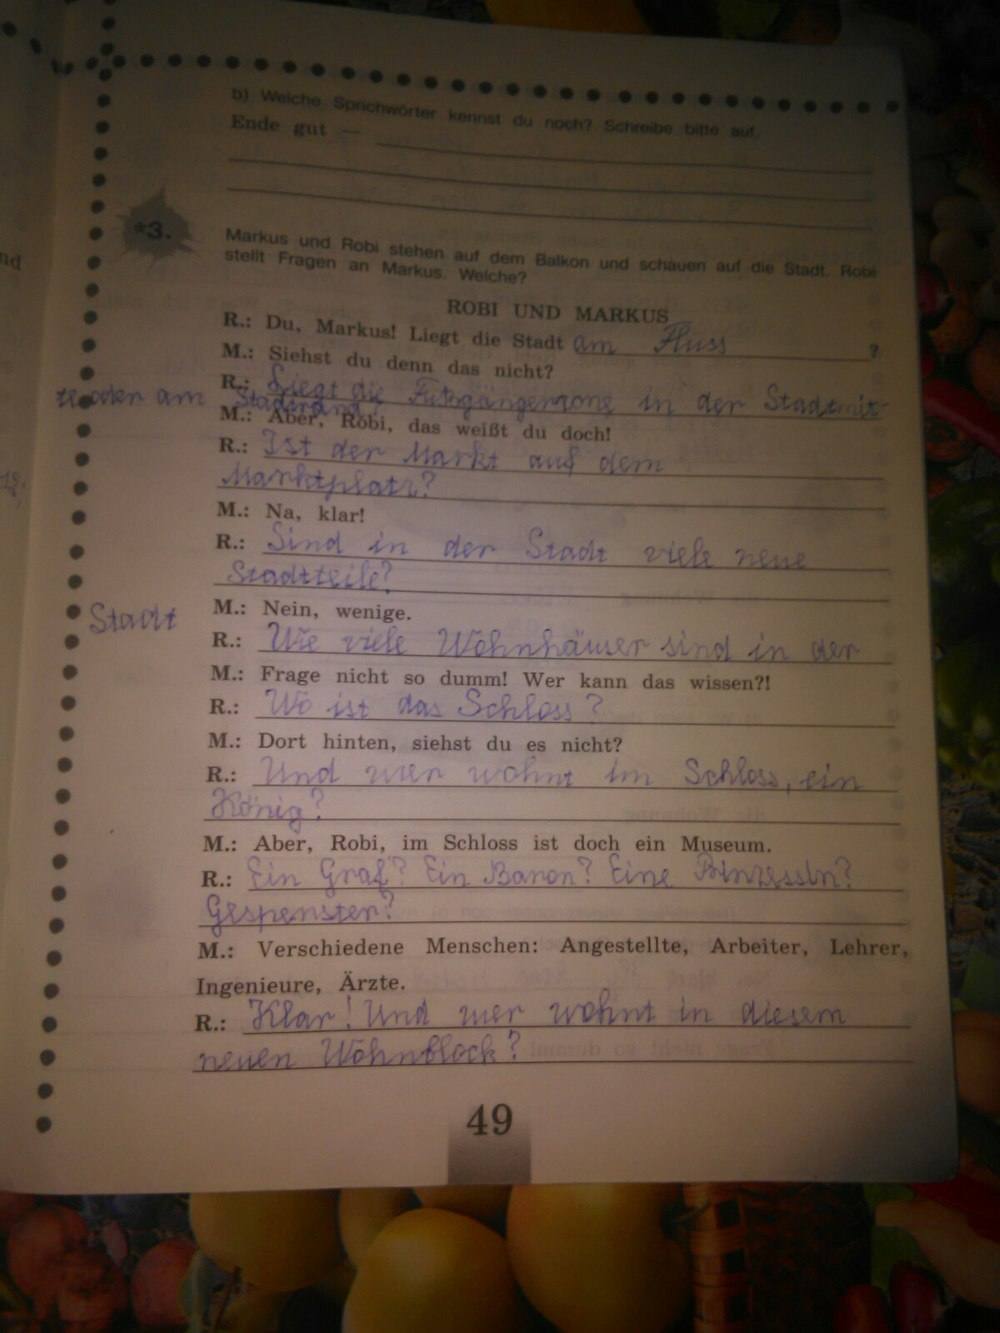 b) Welche Sprichwörter kennst du noch? Schreibe bitte auf.
Ende gut —
*3.
nd
Markus und Robi stehen auf dem Balkon und schauen auf die Stadt. Robi
stellt Fragen an Markus. Welche?
ROBI UND MARKUS
R.: Du, Markus! Liegt die Stadt am Fluss ?
M.: Siehst du denn das nicht?
R.: Liegt die Fußgängerzone in der Stadtmit
te oder am Stadtrand?
M.: Aber, Robi, das weißt du doch!
R.: Ist der Markt auf dem
Marktplatz?
M.: Na, klar!
R.: Sind in der Stadt viele neue
Stadtteile?
M.: Nein, wenige.
R.: Wie viele Wohnhäuser sind in der
Stadt
M.: Frage nicht so dumm! Wer kann das wissen?!
R.: Wo ist das Schloss?
M.: Dort hinten, siehst du es nicht?
R.: Und wer wohnt im Schloss, ein
König?
M.: Aber, Robi, im Schloss ist doch ein Museum.
R.: Ein Graf? Ein Baron? Eine Prinzessin?
Gespenster?
M.: Verschiedene Menschen: Angestellte, Arbeiter, Lehrer,
Ingenieure, Ärzte.
R.: Klar! Und wer wohnt in diesem
neuen Wohnblock?
49